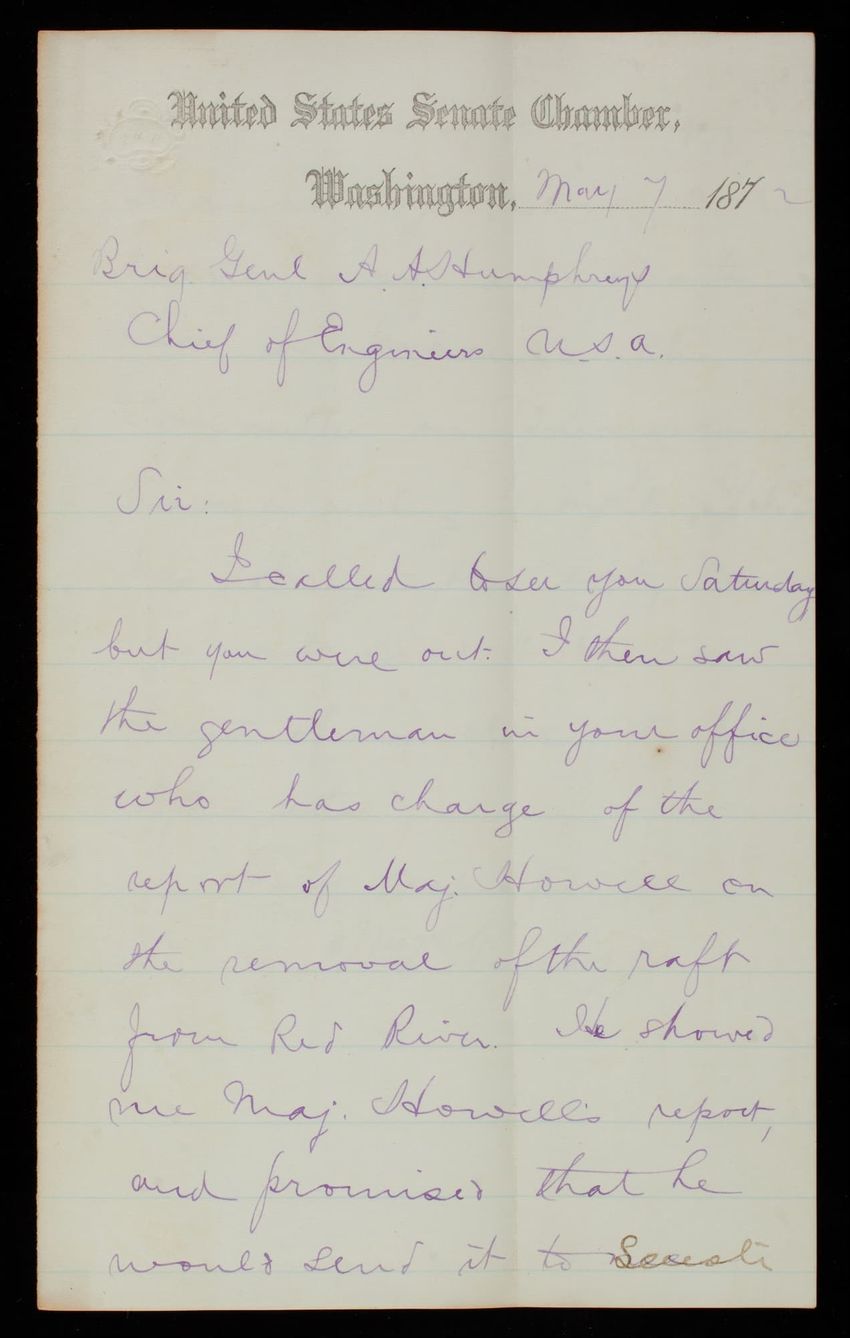 United States Senate Chamber,
Washington, May 7 1872
Brig. Genl A. A. Humphreys
Chief of Engineers U.S.A.
Sir:
I called to see you Saturday
but you were out. I then saw
the gentleman in your office
who has charge of the
report of Maj. Howell on
the removal of the raft
from Red River. He showed
me Maj. Howell's report,
and promised that he
would send it to Senate